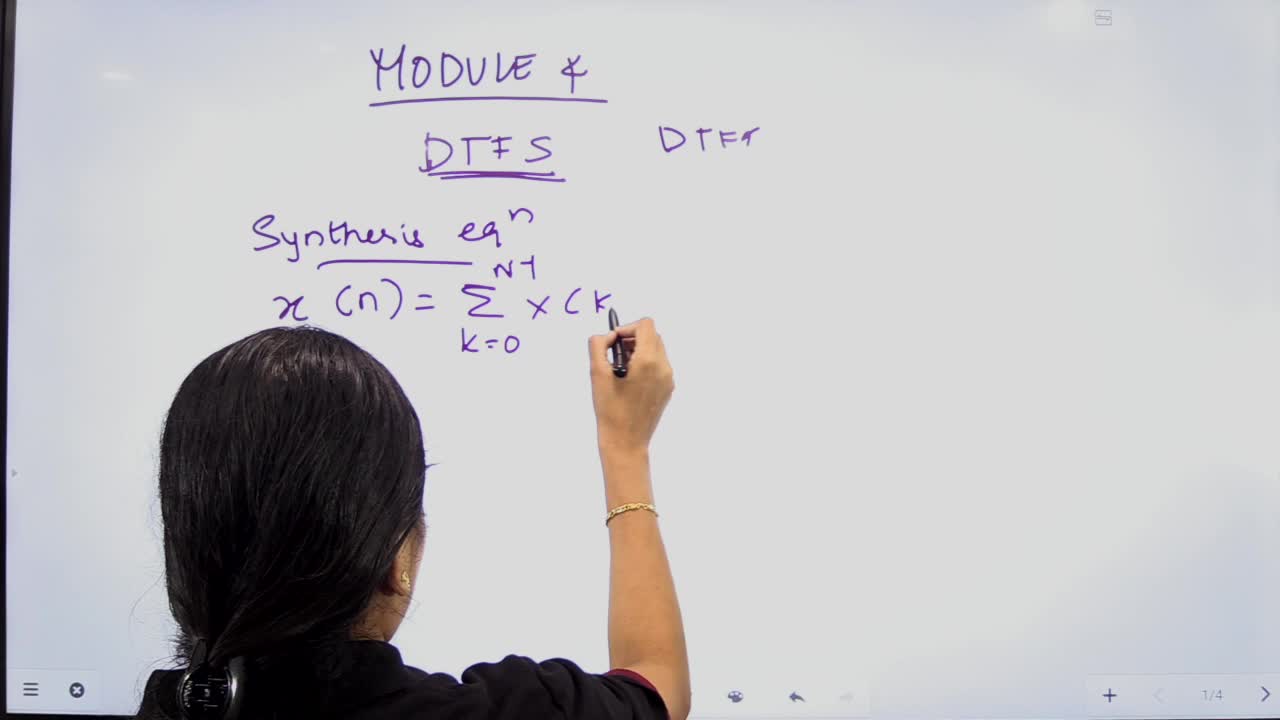 MODULE 4
DTFS DTFT
Synthesis eqⁿ
x (n) = Σ_{k=0}^{N-1} X (k
1/4